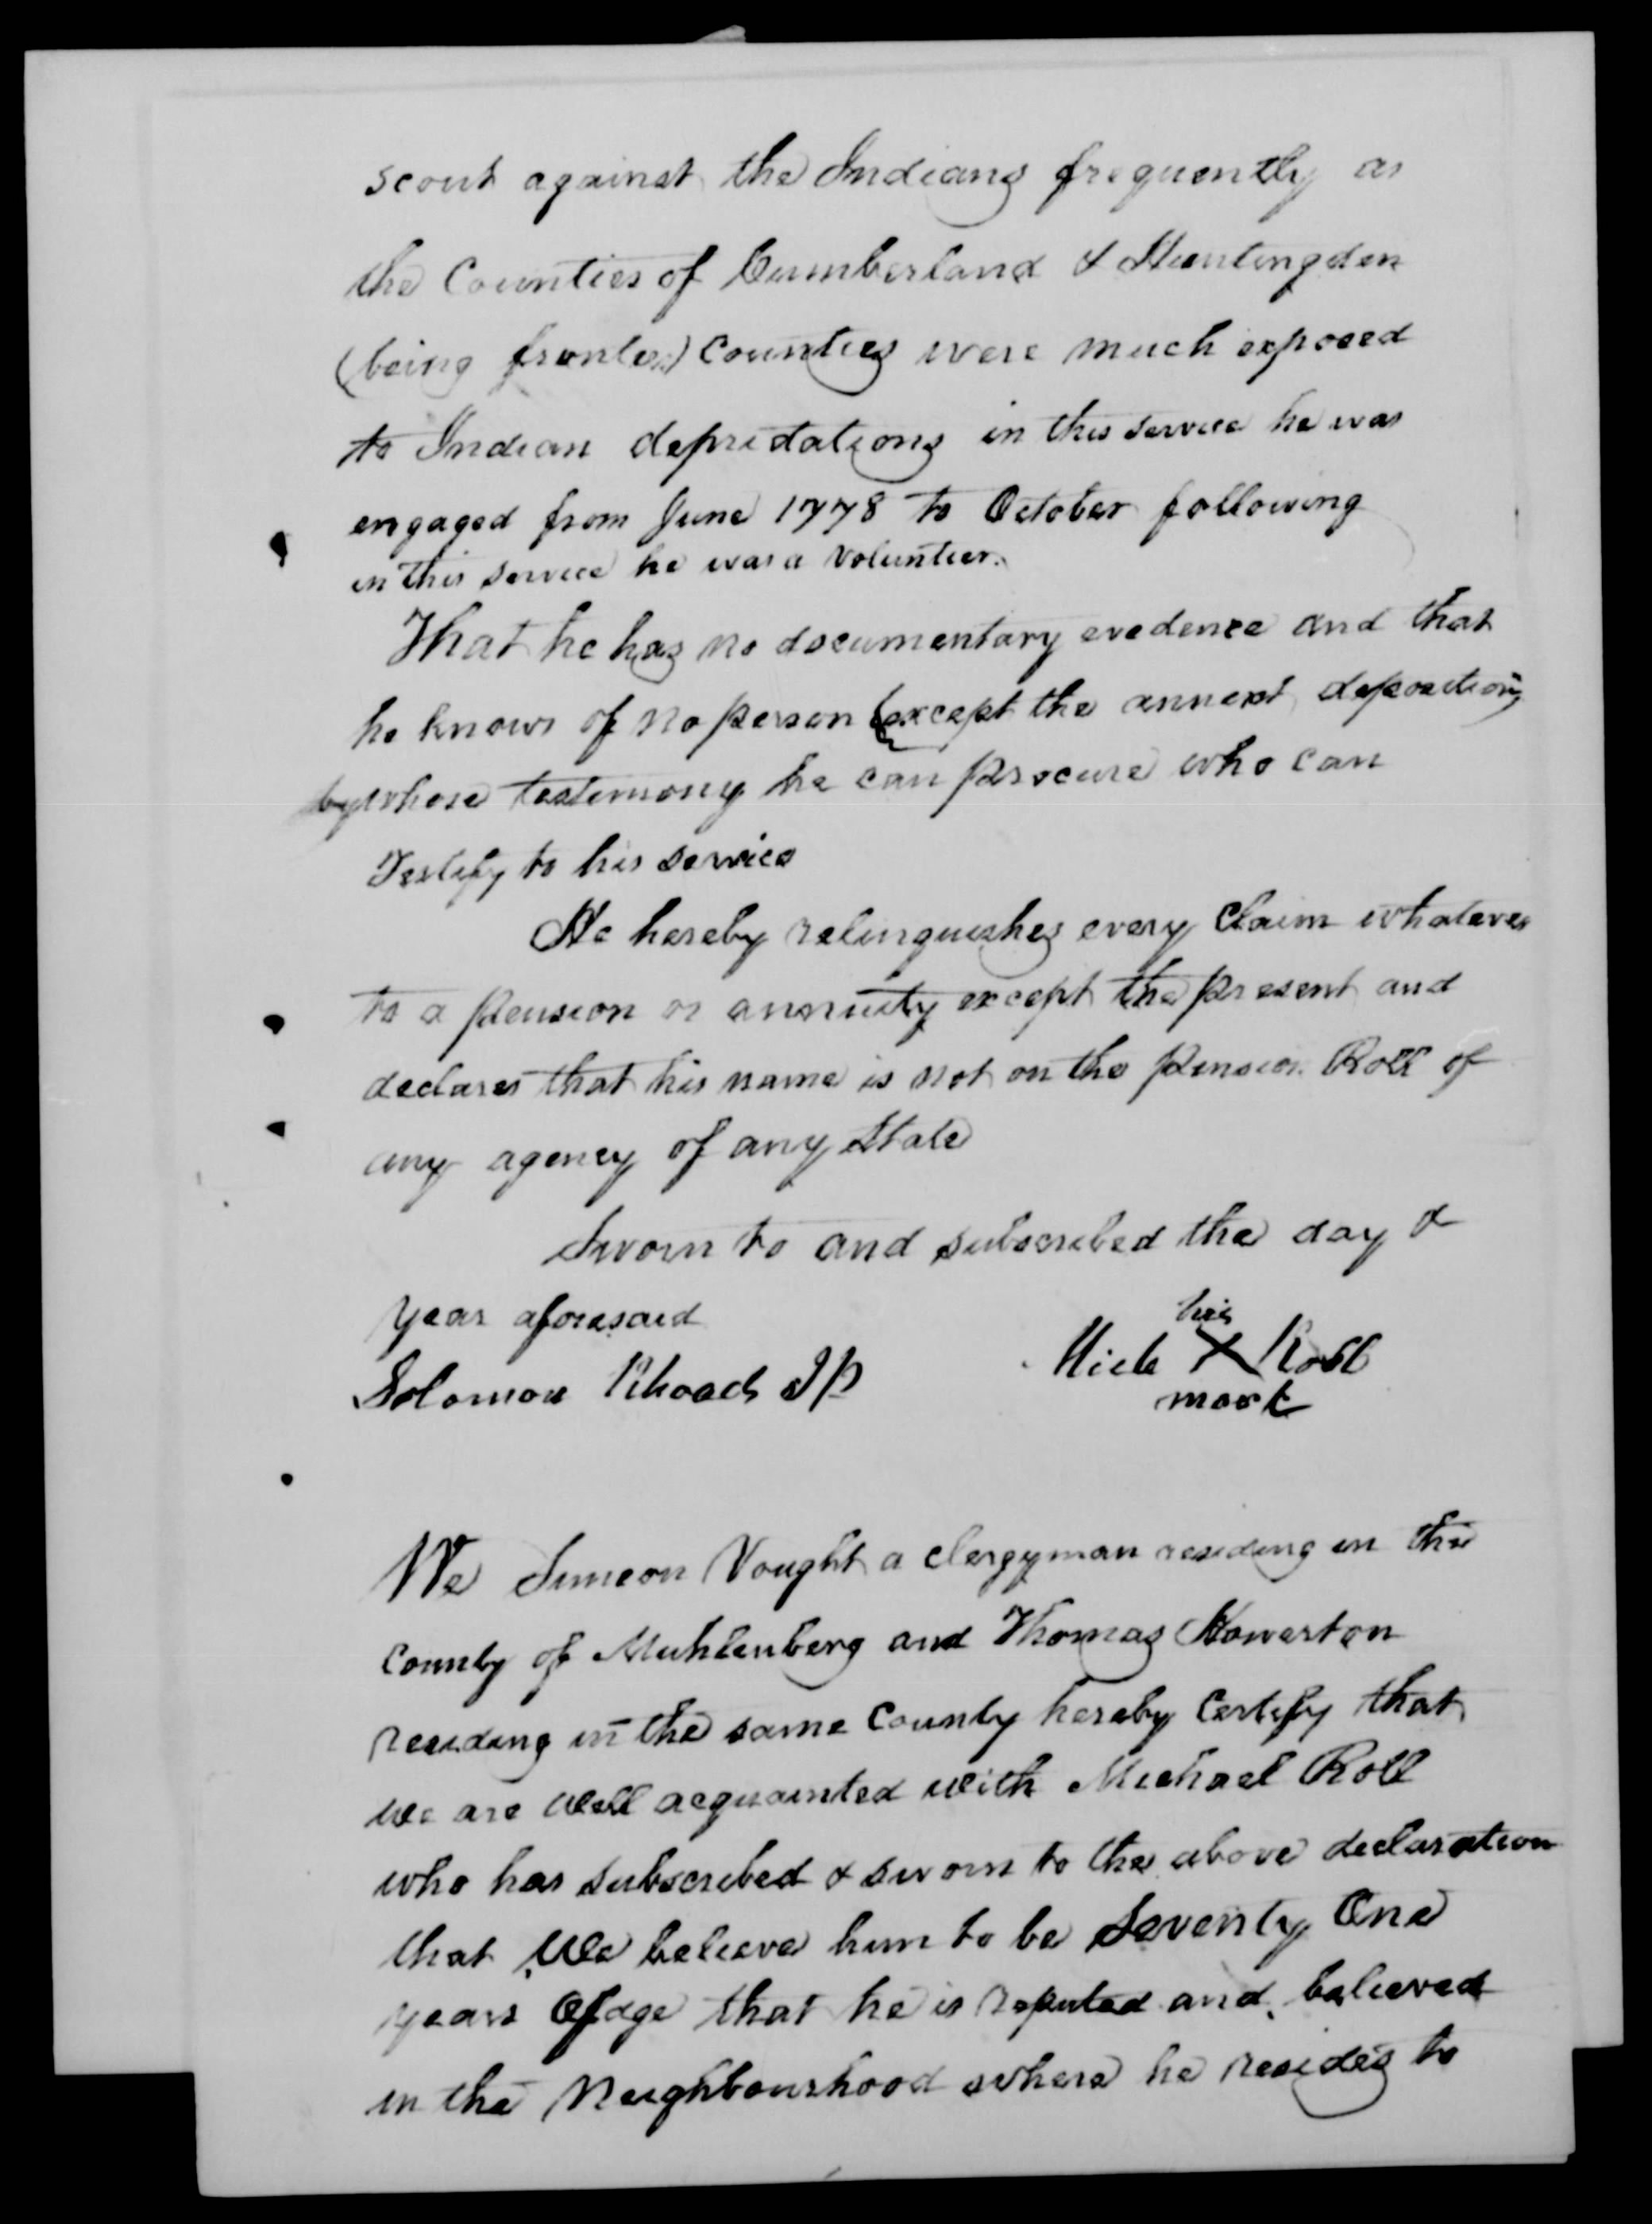 scout against the Indians frequently as
the Counties of Cumberland & Huntingden
(being frontier) Counties were much exposed
to Indian depridations in this service he was
engaged from June 1778 to October following
in this service he was a volunteer.
That he has no documentary evedence and that
he knows of no person (except the annext depositions
by whose testimony he can procure who can
Testify to his service
He hereby relinquishes every Claim whatever
to a pension or annuity except the present and
declares that his name is not on the pension Roll of
any agency of any State
Sworn to and subscribed the day &
year aforesaid
his
Solomon Rhoads JP Mich X Roll
mark
We Simeon Vought a clergyman residing in the
County of Muhlenberg and Thomas Howerton
residing in the same County hereby Certify that
we are well acquainted with Michael Roll
who has subscribed & sworn to the above declaration
that We believe him to be Seventy One
years Of age that he is reputed and believed
in the Neighbourhood where he resides to